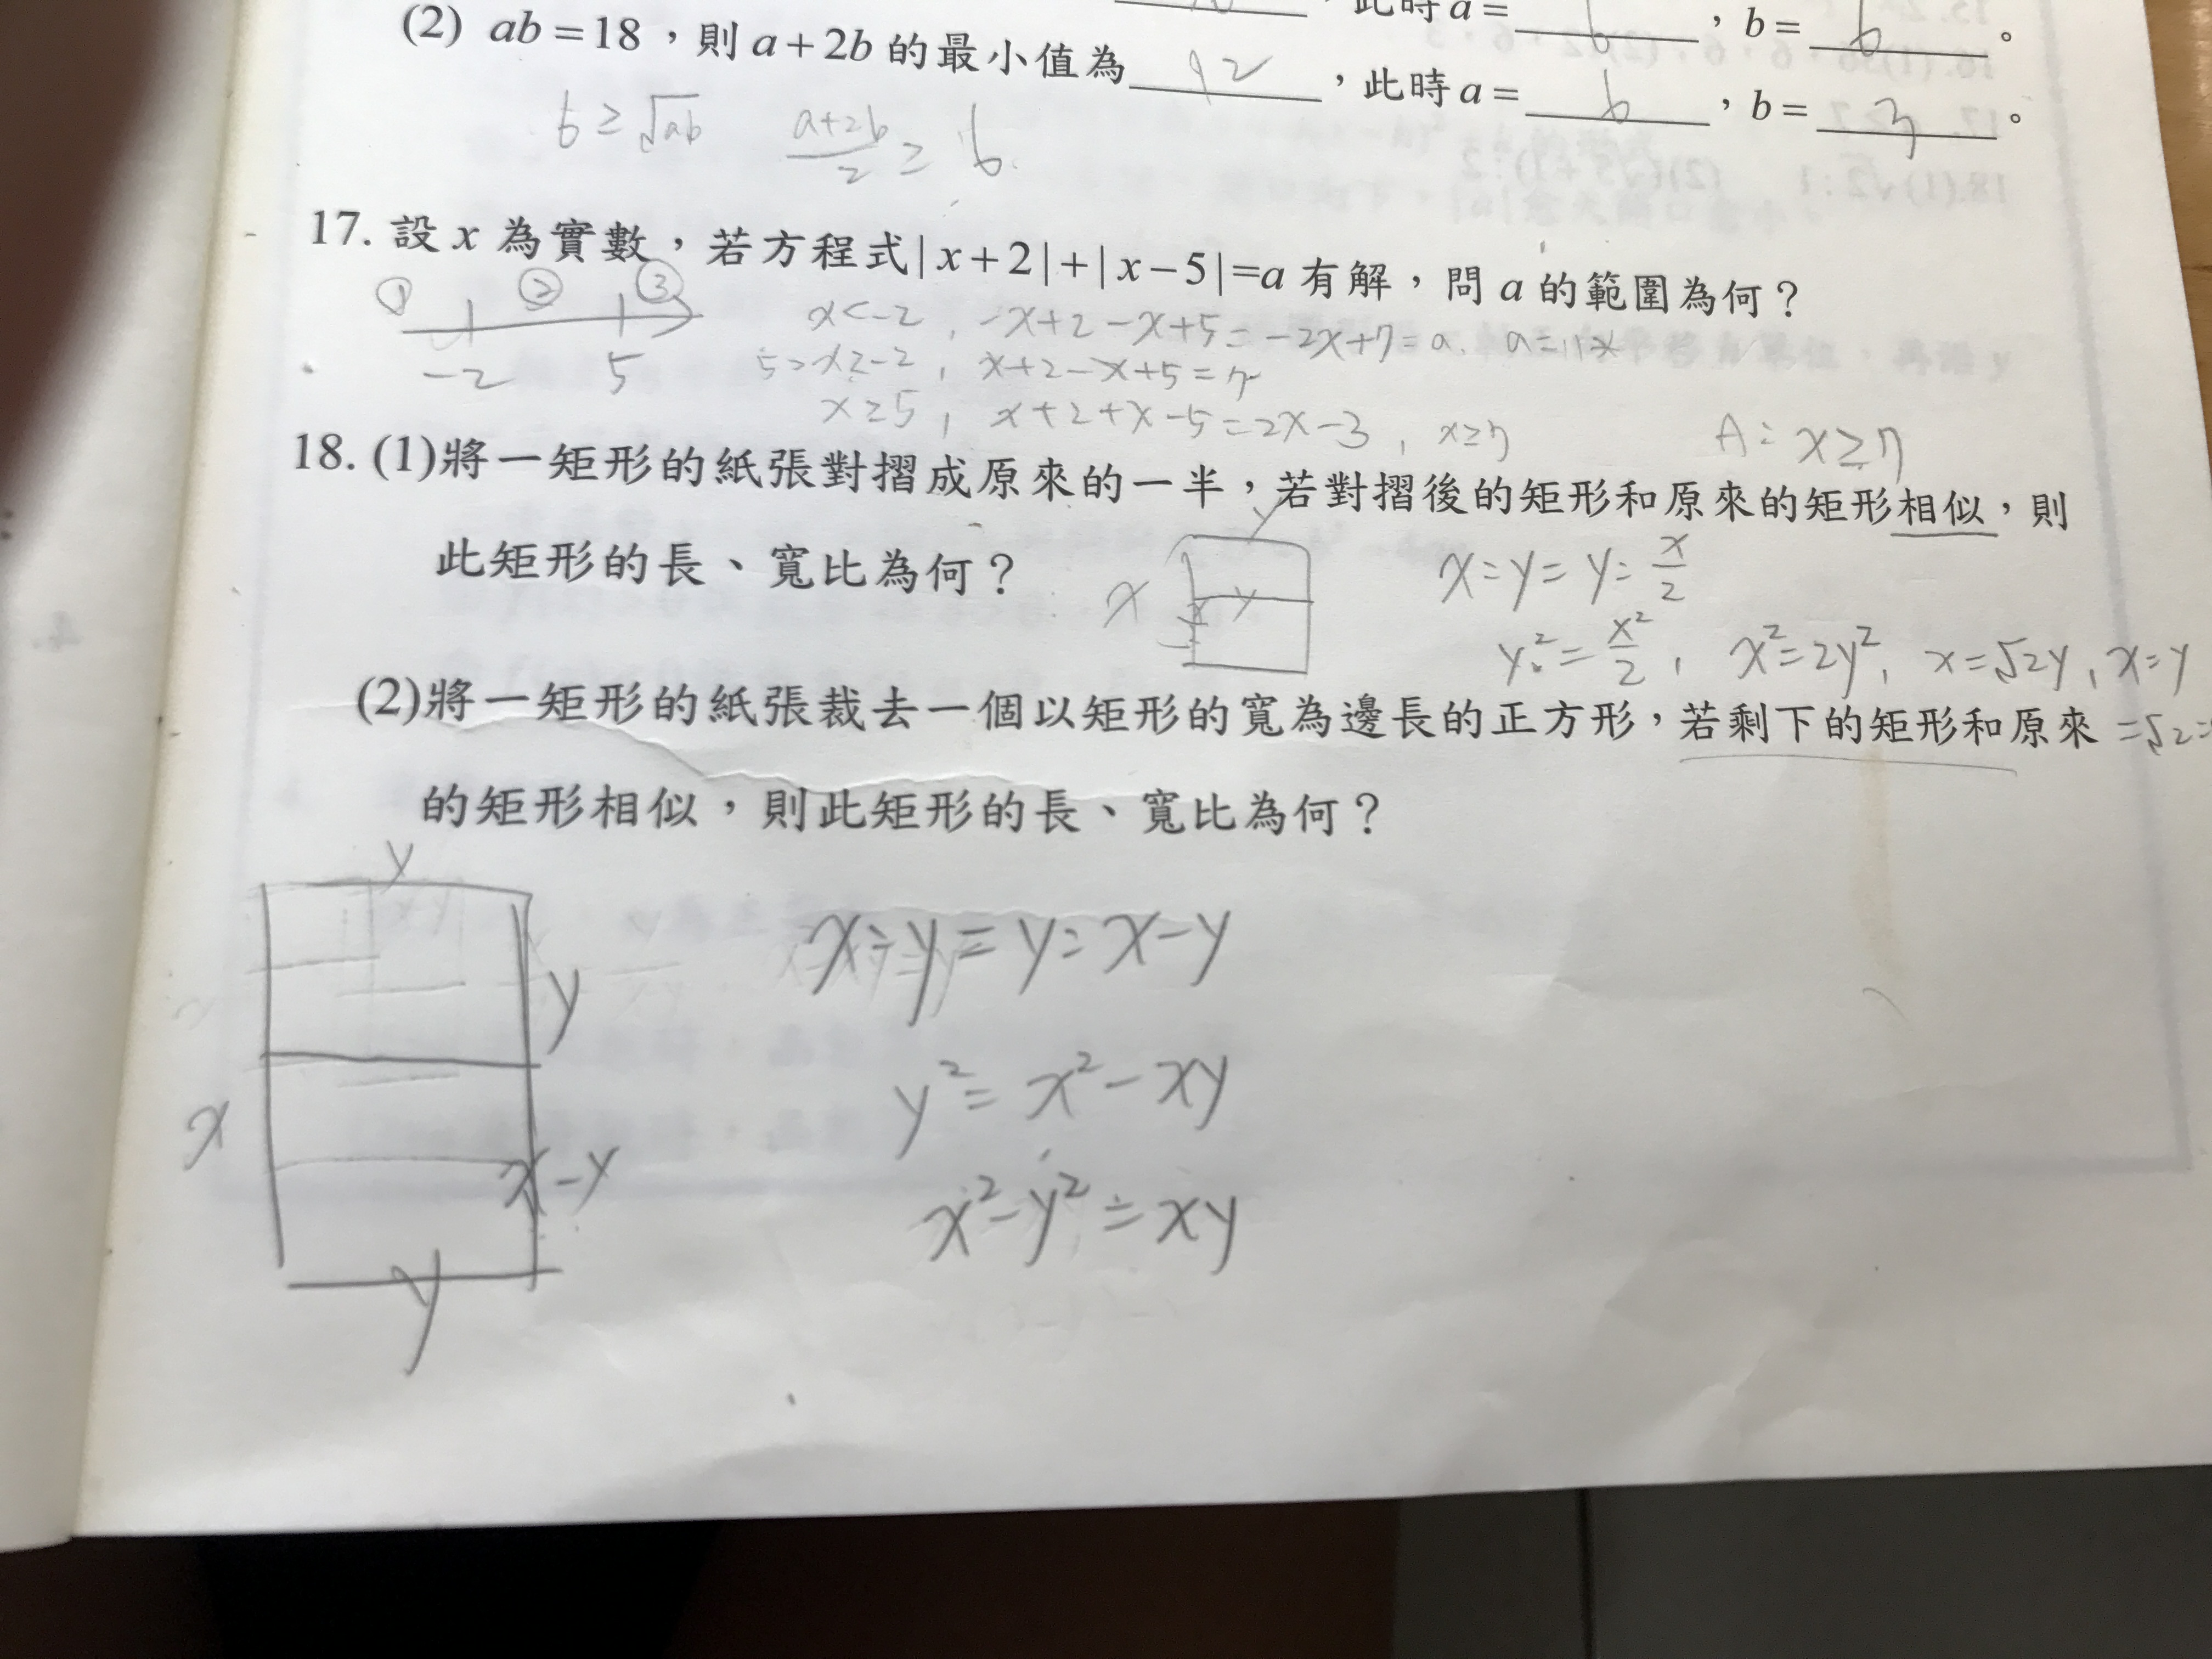 此時a= 6 ，b= 6 。
(2) ab=18，則a+2b的最小值為 12 ，此時a= 6 ，b= 3 。
6≥√ab  (a+2b)/2 ≥ 6
17. 設x為實數，若方程式|x+2|+|x-5|=a有解，問a的範圍為何？
① ② ③
-2 5
x<-2, -x+2-x+5=-2x+7=a.
5>x≥-2, x+2-x+5=7
x≥5, x+2+x-5=2x-3, x≥7
A: x≥7
18. (1)將一矩形的紙張對摺成原來的一半，若對摺後的矩形和原來的矩形相似，則
此矩形的長、寬比為何？
y
x
y
x:y=y:x/2
y²=x²/2, x²=2y², x=√2y, x:y
=√2:
(2)將一矩形的紙張裁去一個以矩形的寬為邊長的正方形，若剩下的矩形和原來
的矩形相似，則此矩形的長、寬比為何？
y
y
x
x-y
y
x:y=y:x-y
y²=x²-xy
x²-y²=xy